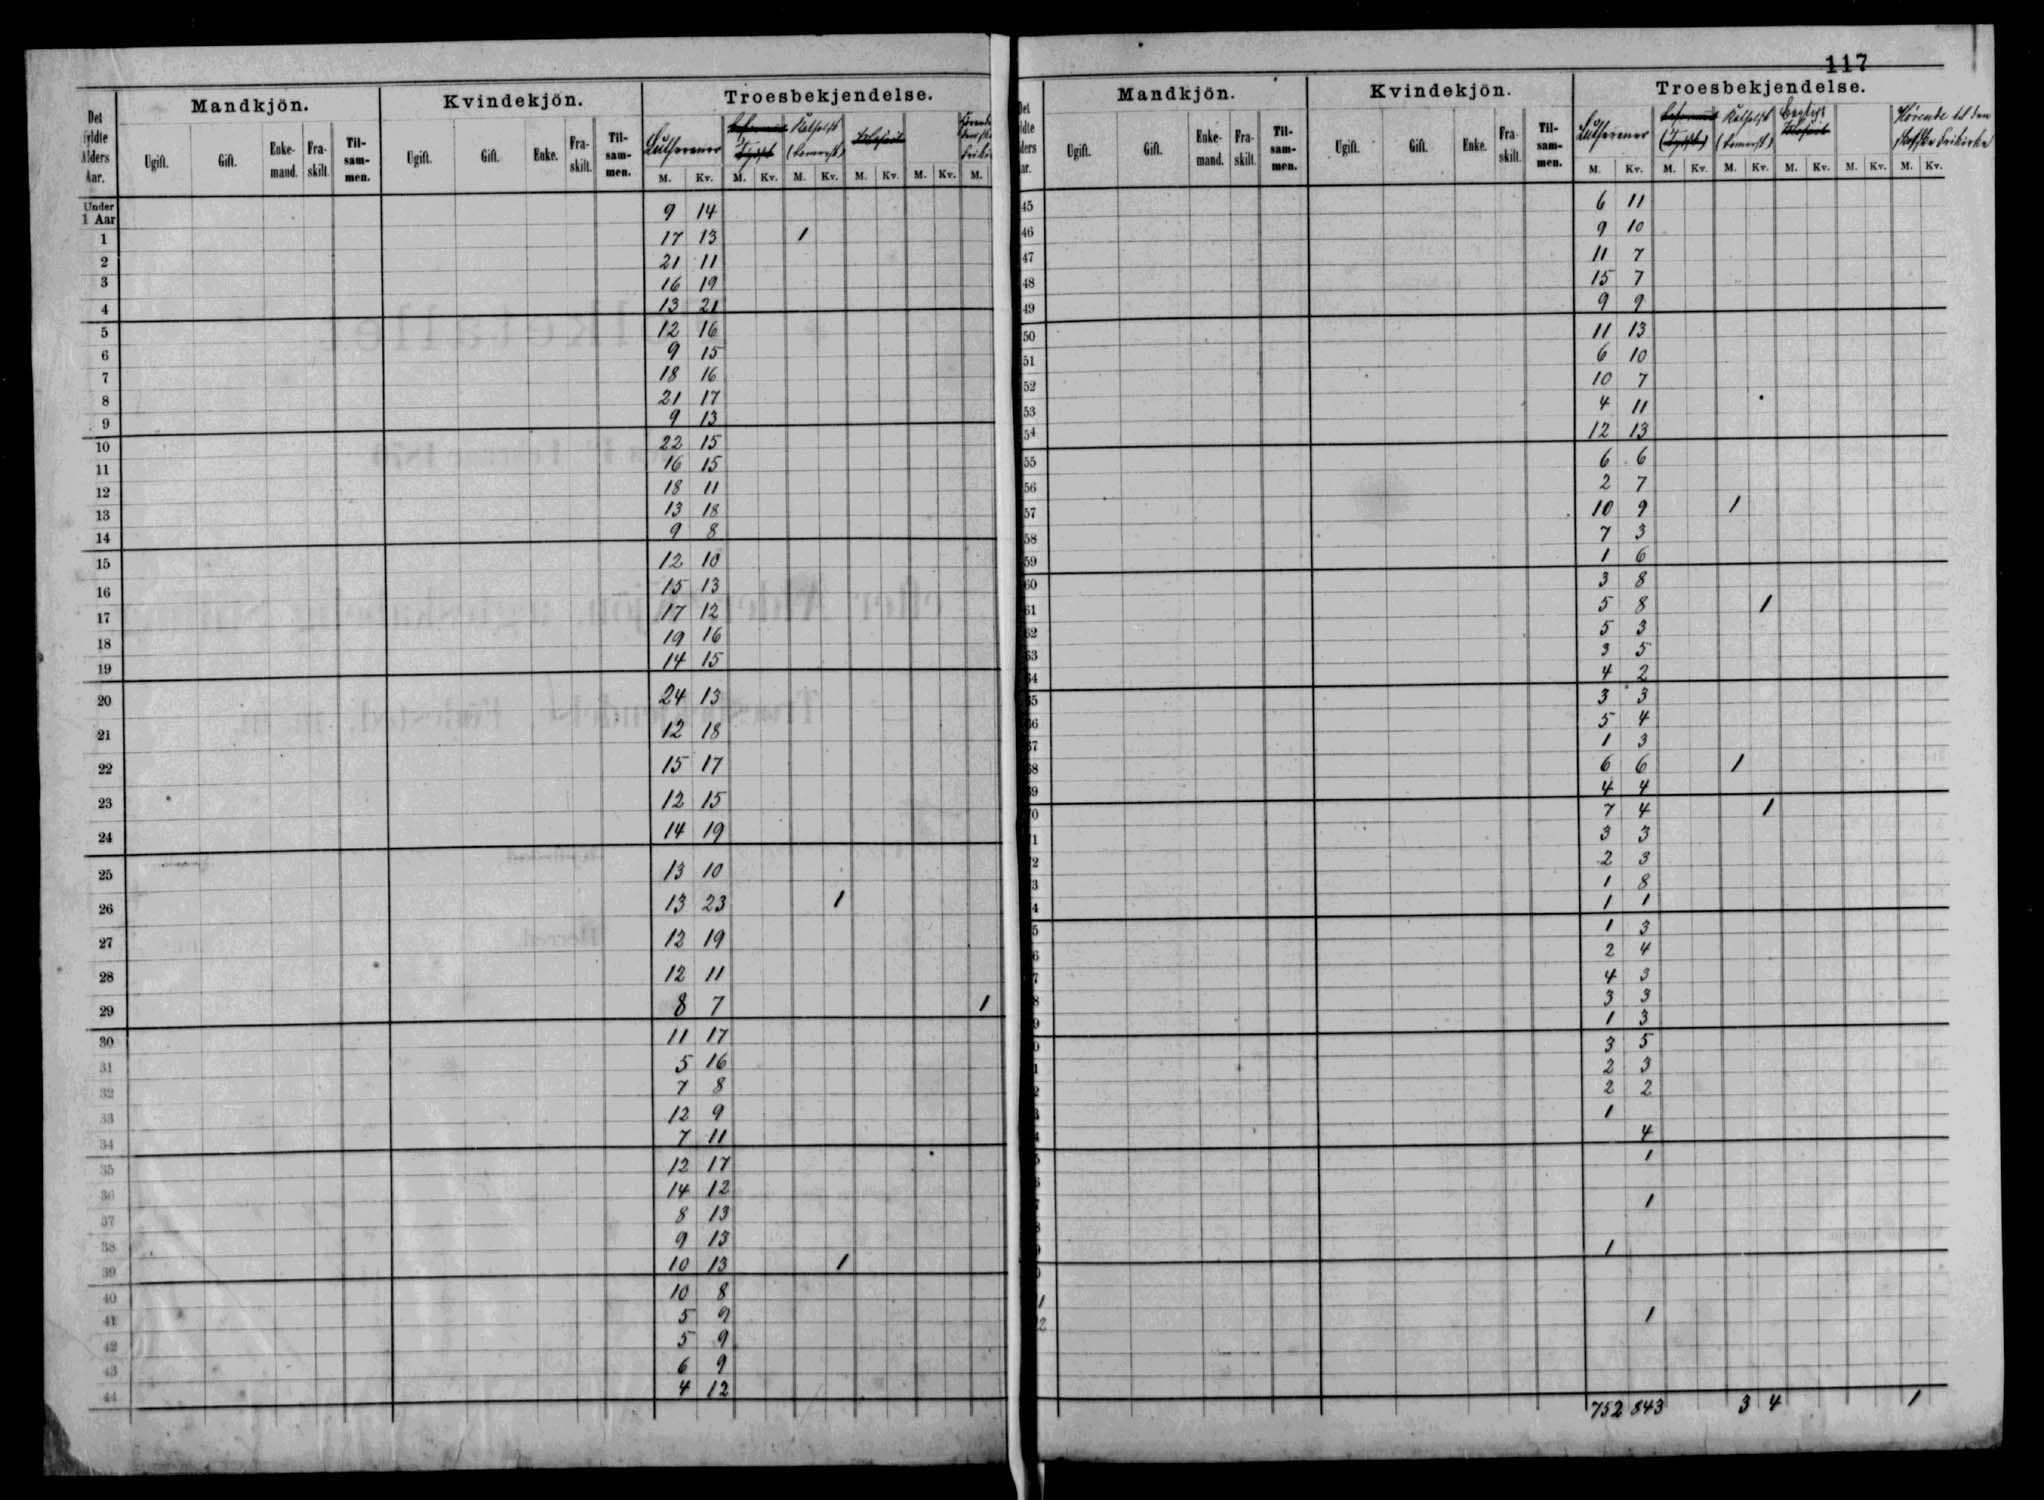 117
Mandkjön. Kvindekjön. Troesbekjendelse.
Det fyldte Alders Aar. Ugift. Gift. Enke-mand. Fra-skilt. Til-sam-men. Ugift. Gift. Enke. Fra-skilt. Til-sam-men. Lutheraner
M. Kv. M. Kv. M. Kv. M. Kv. M. Kv. M.
Under 1 Aar 9 14
1 17 13 1
2 21 11
3 16 19
4 13 21
5 12 16
6 9 15
7 18 16
8 21 17
9 9 13
10 22 15
11 16 15
12 18 11
13 13 18
14 9 8
15 12 10
16 15 13
17 17 12
18 19 16
19 14 15
20 24 13
21 12 18
22 15 17
23 12 15
24 14 19
25 13 10
26 13 23 1
27 12 19
28 12 11
29 8 7 1
30 11 17
31 5 16
32 7 8
33 12 9
34 7 11
35 12 17
36 14 12
37 8 13
38 9 13
39 10 13 1
40 10 8
41 5 9
42 5 9
43 6 9
44 4 12
Mandkjön. Kvindekjön. Troesbekjendelse.
Ugift. Gift. Enke-mand. Fra-skilt. Til-sam-men. Ugift. Gift. Enke. Fra-skilt. Til-sam-men. Lutheraner
M. Kv. M. Kv. M. Kv. M. Kv. M. Kv. M. Kv.
45 6 11
46 9 10
47 11 7
48 15 7
49 9 9
50 11 13
51 6 10
52 10 7
53 4 11
54 12 13
55 6 6
56 2 7
57 10 9 1
58 7 3
59 1 6
60 3 8
61 5 8 1
62 5 3
63 3 5
4 4 2
5 3 3
6 5 4
7 1 3
8 6 6 1
9 4 4
0 7 4 1
1 3 3
2 2 3
3 1 8
4 1 1
5 1 3
6 2 4
7 4 3
8 3 3
9 1 3
3 5
2 3
2 2
1
4
1
1
1
1
1
2
752 843 3 4 1